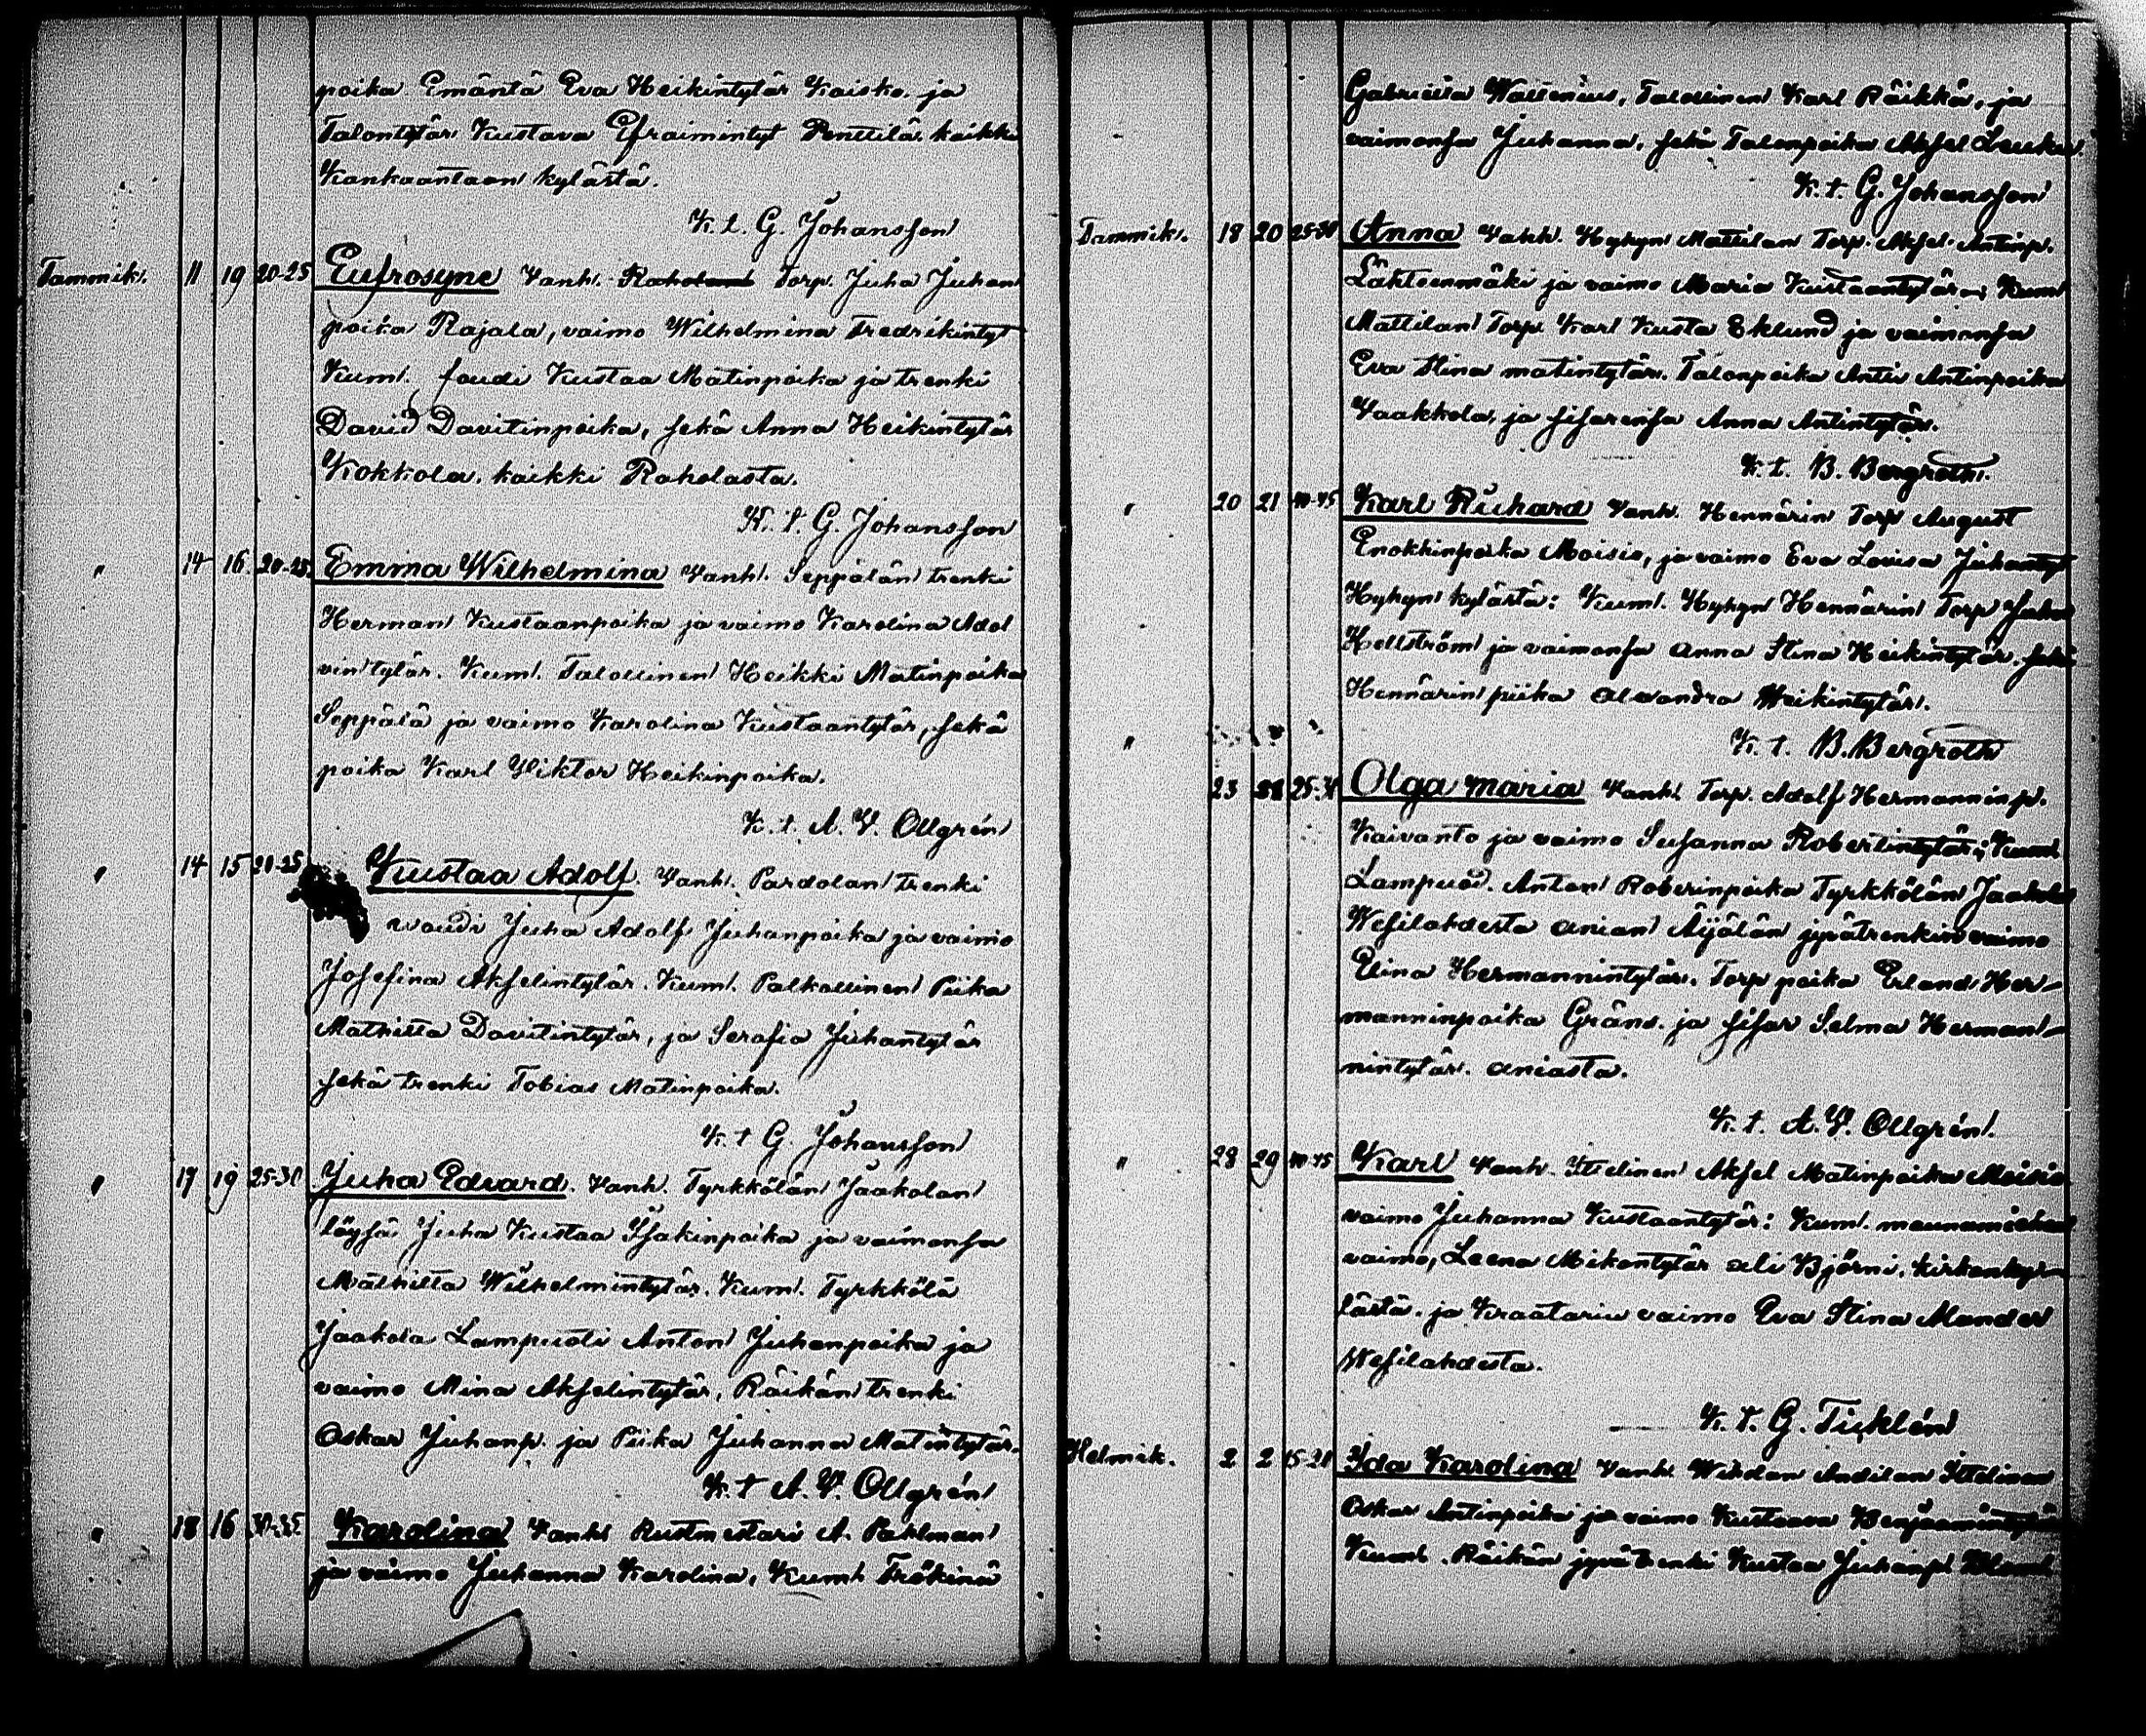 poika. Emäntä Eva Heikintytär Kaisko. ja
Talontytär Kustava Efraimintyt Penttilä. kaikki
Kankaantaan kylästä.
K. t. G. Johansson
Tammik. 11 19 20-25 Eufrosyne Vanh. Torp. Juha Juhan
poika Rajala, vaimo Wilhelmina Fredrikintyt
Kum. foudi Kustaa Matinpoika ja trenki
David Davitinpoika, sekä Anna Heikintytär
Kokkola. kaikki Raholasta.
K. t. G. Johansson
" 14 16 20-25 Emma Wilhelmina Vanh. Seppälän trenki
Herman Kustaanpoika ja vaimo Karolina Adol
vintytär. Kum. Talollinen Heikki Matinpoika
Seppälä ja vaimo Karolina Kustaantytär, sekä
poika Karl Viktor Heikinpoika.
K. t. A. V. Ollgrén
" 14 15 20-25 Kustaa Adolf. Vanh. Pardolan trenki
woudi Juha Adolf Juhanpoika ja vaimo
Josefina Akselintytär. Kum. Palkollinen Piika
Mathilta Davitintytär, ja Serafia Juhantytär
sekä trenki Tobias Matinpoika.
K. t G. Johansson
" 17 19 25-30 Juha Edvard. Vanh. Tyrkkölän Jaakolan
löysä Juha Kustaa Isakinpoika ja vaimonsa
Mathilta Wilhelmintytär. Kum. Tyrkkölä
Jaakola Lampuoti Anton Juhanpoika ja
vaimo Mina Akselintytär, Räikän trenki
Oskar Juhanp. ja Piika Juhanna Matintytär.
K. t A. V. Ollgrén
" 18 16 30-35 Karolina Vanh. Rustmestari A. Pahlman
ja vaimo Juhanna Karolina, Kum. Frökinä
Gabriella Wallenius, Talollinen Karl Räikkä, ja
vaimonsa Juhanna, sekä Talonpoika Aksel
K. t. G. Johansson
Tammik. 18 20 25-30 Anna Vanh. Hyhyn Mattilan Torp. Aksel Antinp.
Lähteenmäki ja vaimo Maria Kustaantytär. Kum
Mattilan Torp. Karl Kusta Eklund ja vaimonsa
Eva Stina matintytär. Talonpoika Antti Antinpoika
Vaakkola, ja sisarensa Anna Antintytär.
K. t. B. Bergroth.
" 20 21 40-45 Karl Richard Vanh. Hennärin Torp August
Enokkinpoika Moisio, ja vaimo Eva Lovisa Juhantyt
Hyhyn kylästä: Kum. Hyhyn Hennärin Torp Juha
Hellström ja vaimonsa Anna Stina Heikintytär. sekä
Hennärin piika Alexandra Heikintytär.
" K. t. B. Bergroth
23 25-30 Olga Maria Vanh. Torp. Adolf Hermanninp.
Kaivanto ja vaimo Susanna Robertintytär; Kum.
Lampuod. Anton Roberinpoika Tyrkkölän Jaakola
Wesilahdesta Anian Äijälän jyvätrenkin vaimo
Elina Hermannintytär. Torp poika Erland Her-
manninpoika Gränd. ja sisar Selma Herman-
nintytär. Aniasta.
K. t. A. V. Ollgrén.
" 28 29 40-45 Karl Vanh. Itselinen Aksel Matinpoika Moisio
vaimo Juhanna Kustaantytär: Kum. maunamiehen
vaimo, Leena Mikontytär eli Björni, kirkonky-
lästä. ja Kraatarin vaimo Eva Stina Mander
Wesilahdesta.
K. t. G. Ticklén
Helmik. 2 2 15-20 Ida Karolina Vanh. Wihdan Andilan Itselinen
Oskar Antinpoika ja vaimo Kustaava Benjamintytär
Kum. Räikän jyvätrenki Kustaa Juhanp.